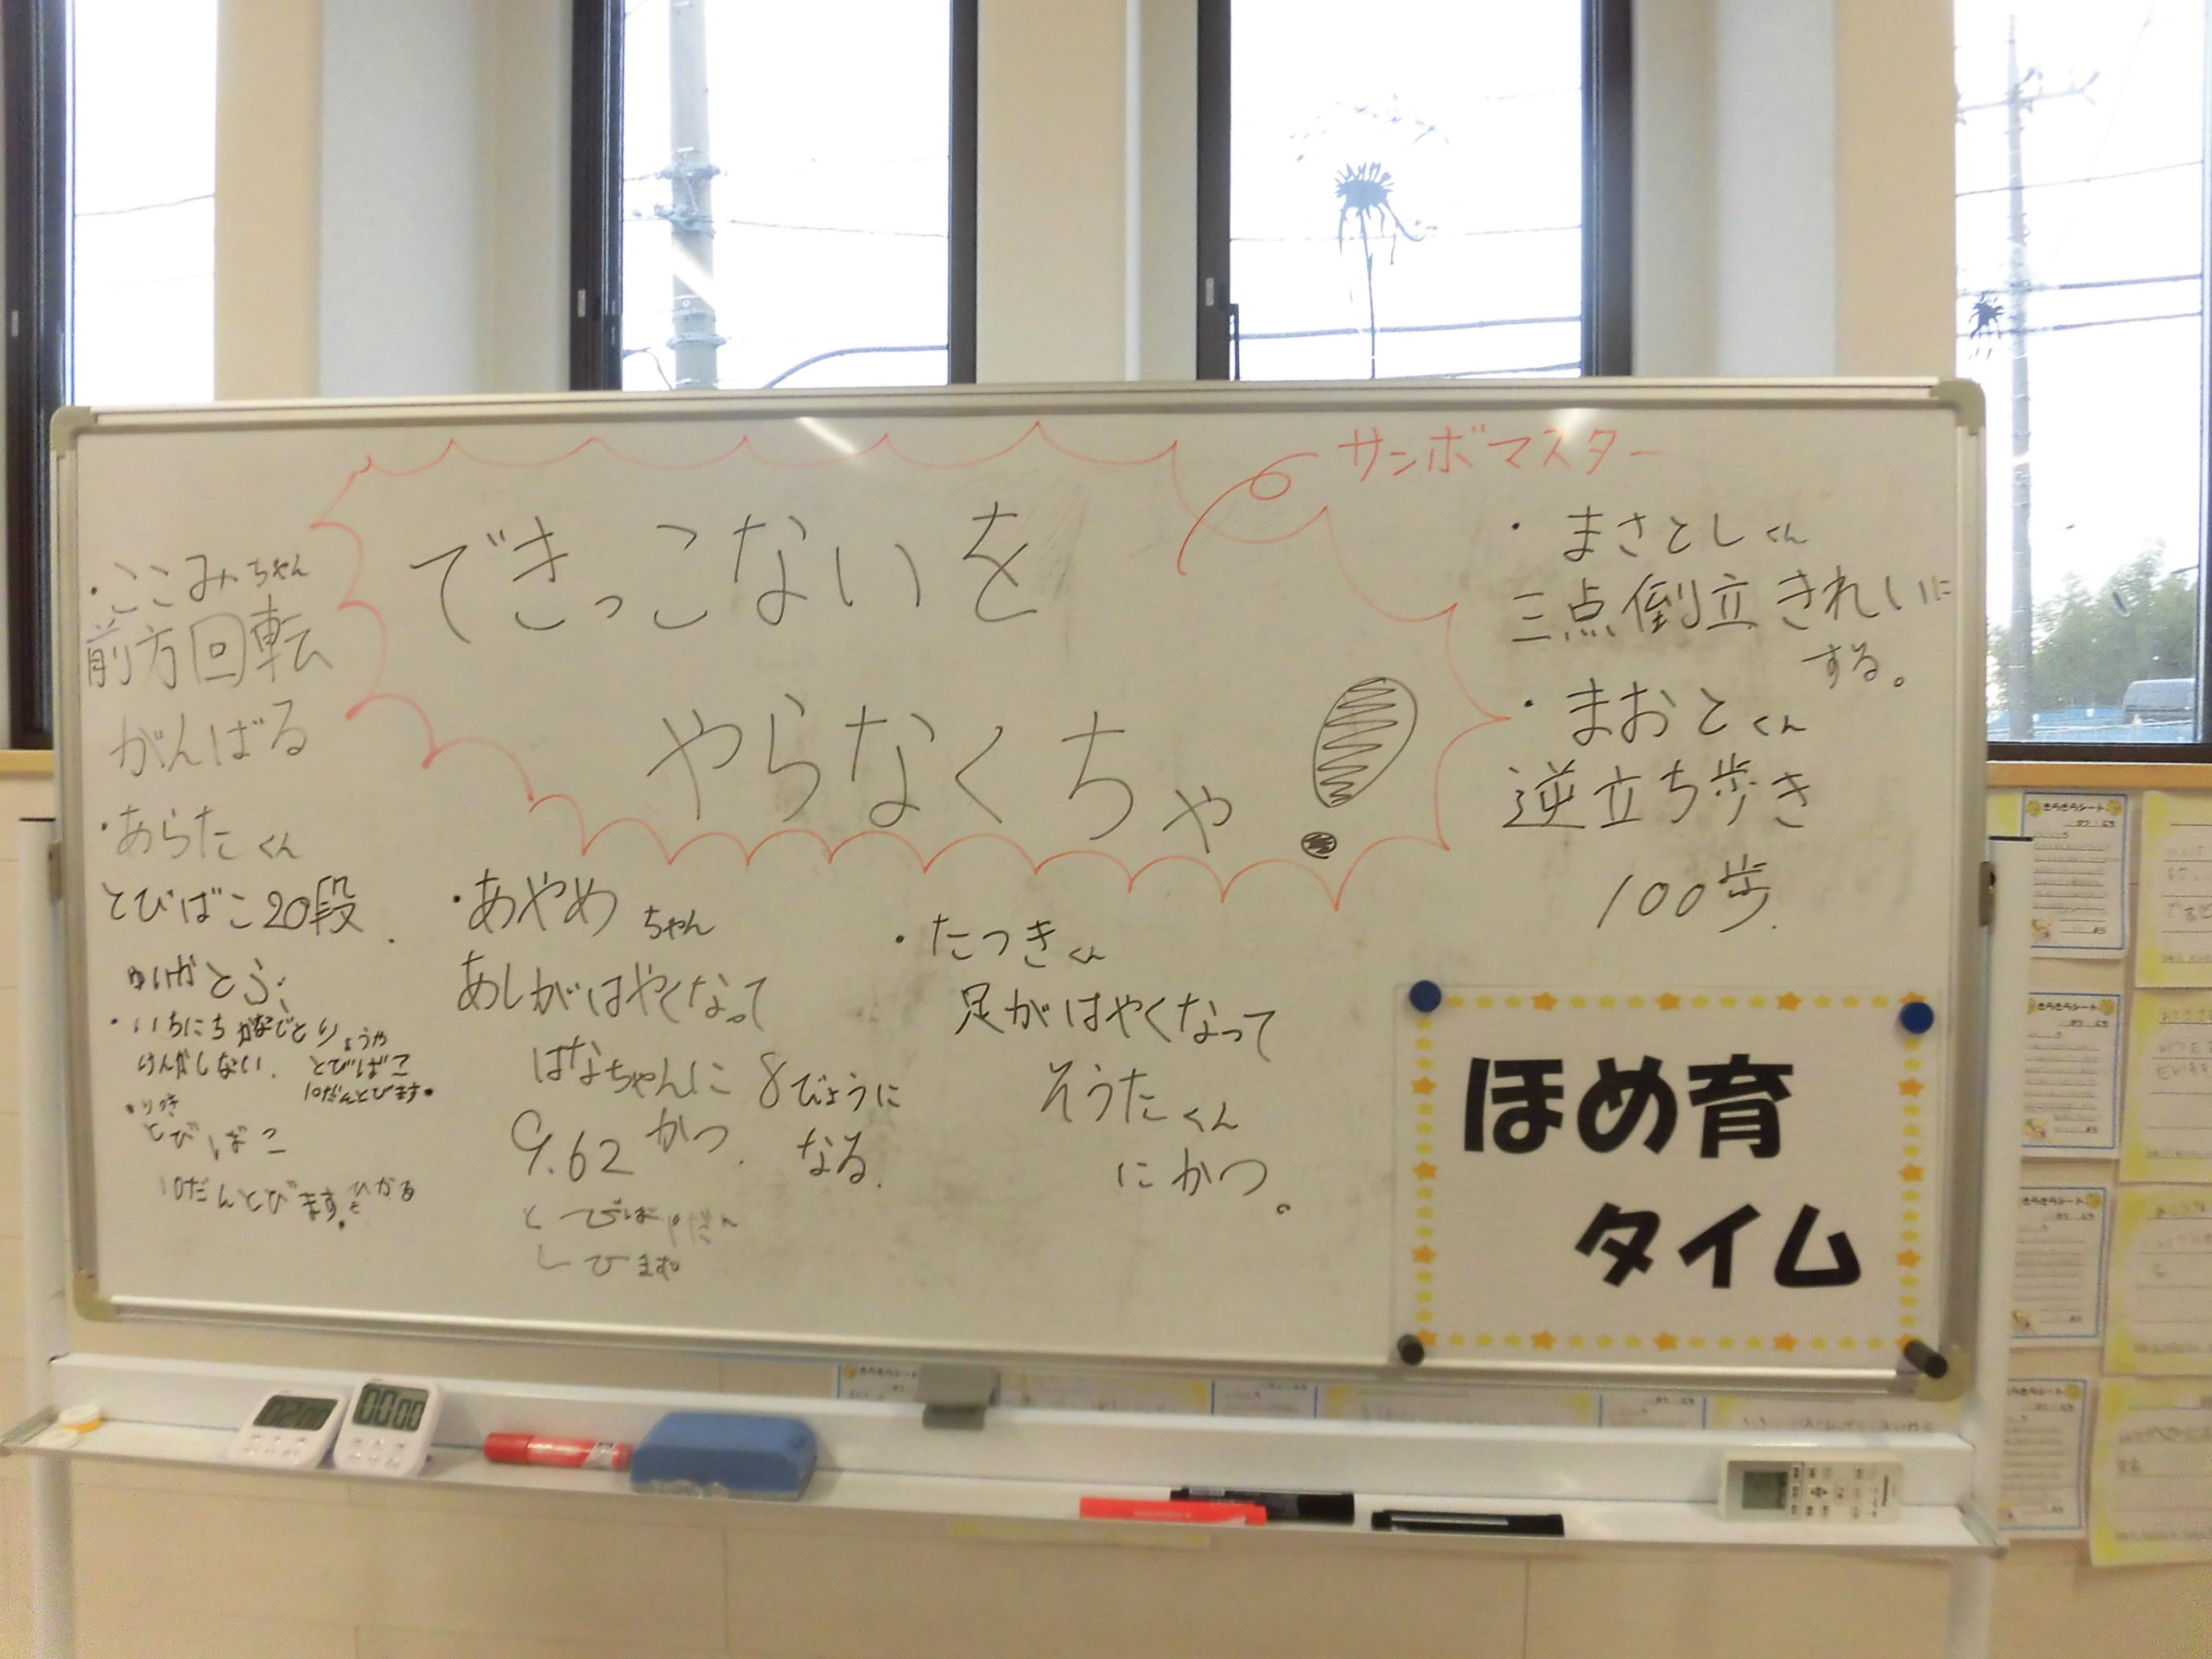 サンボマスター
できっこないを
やらなくちゃ!
・ここみちゃん
前方回転
がんばる
・あらたくん
とびばこ20段.
ゆいがとぶ
・いちにち かなでとりょうや
けんかしない. とびばこ
10だんとびます。
・りつき
とびばこ
10だんとびます。
・あやめちゃん
あしがはやくなって
はなちゃんに
9.62 かつ.
8びょうに
なる.
とびば
とびます
・たつきくん
足がはやくなって
そうたくん
にかつ。
・まさとしくん
三点倒立きれいに
する。
・まおとくん
逆立ち歩き
100歩.
ほめ育
タイム
00 00
きらきらシート
きらきらシート
きらきらシート
きらきらシート